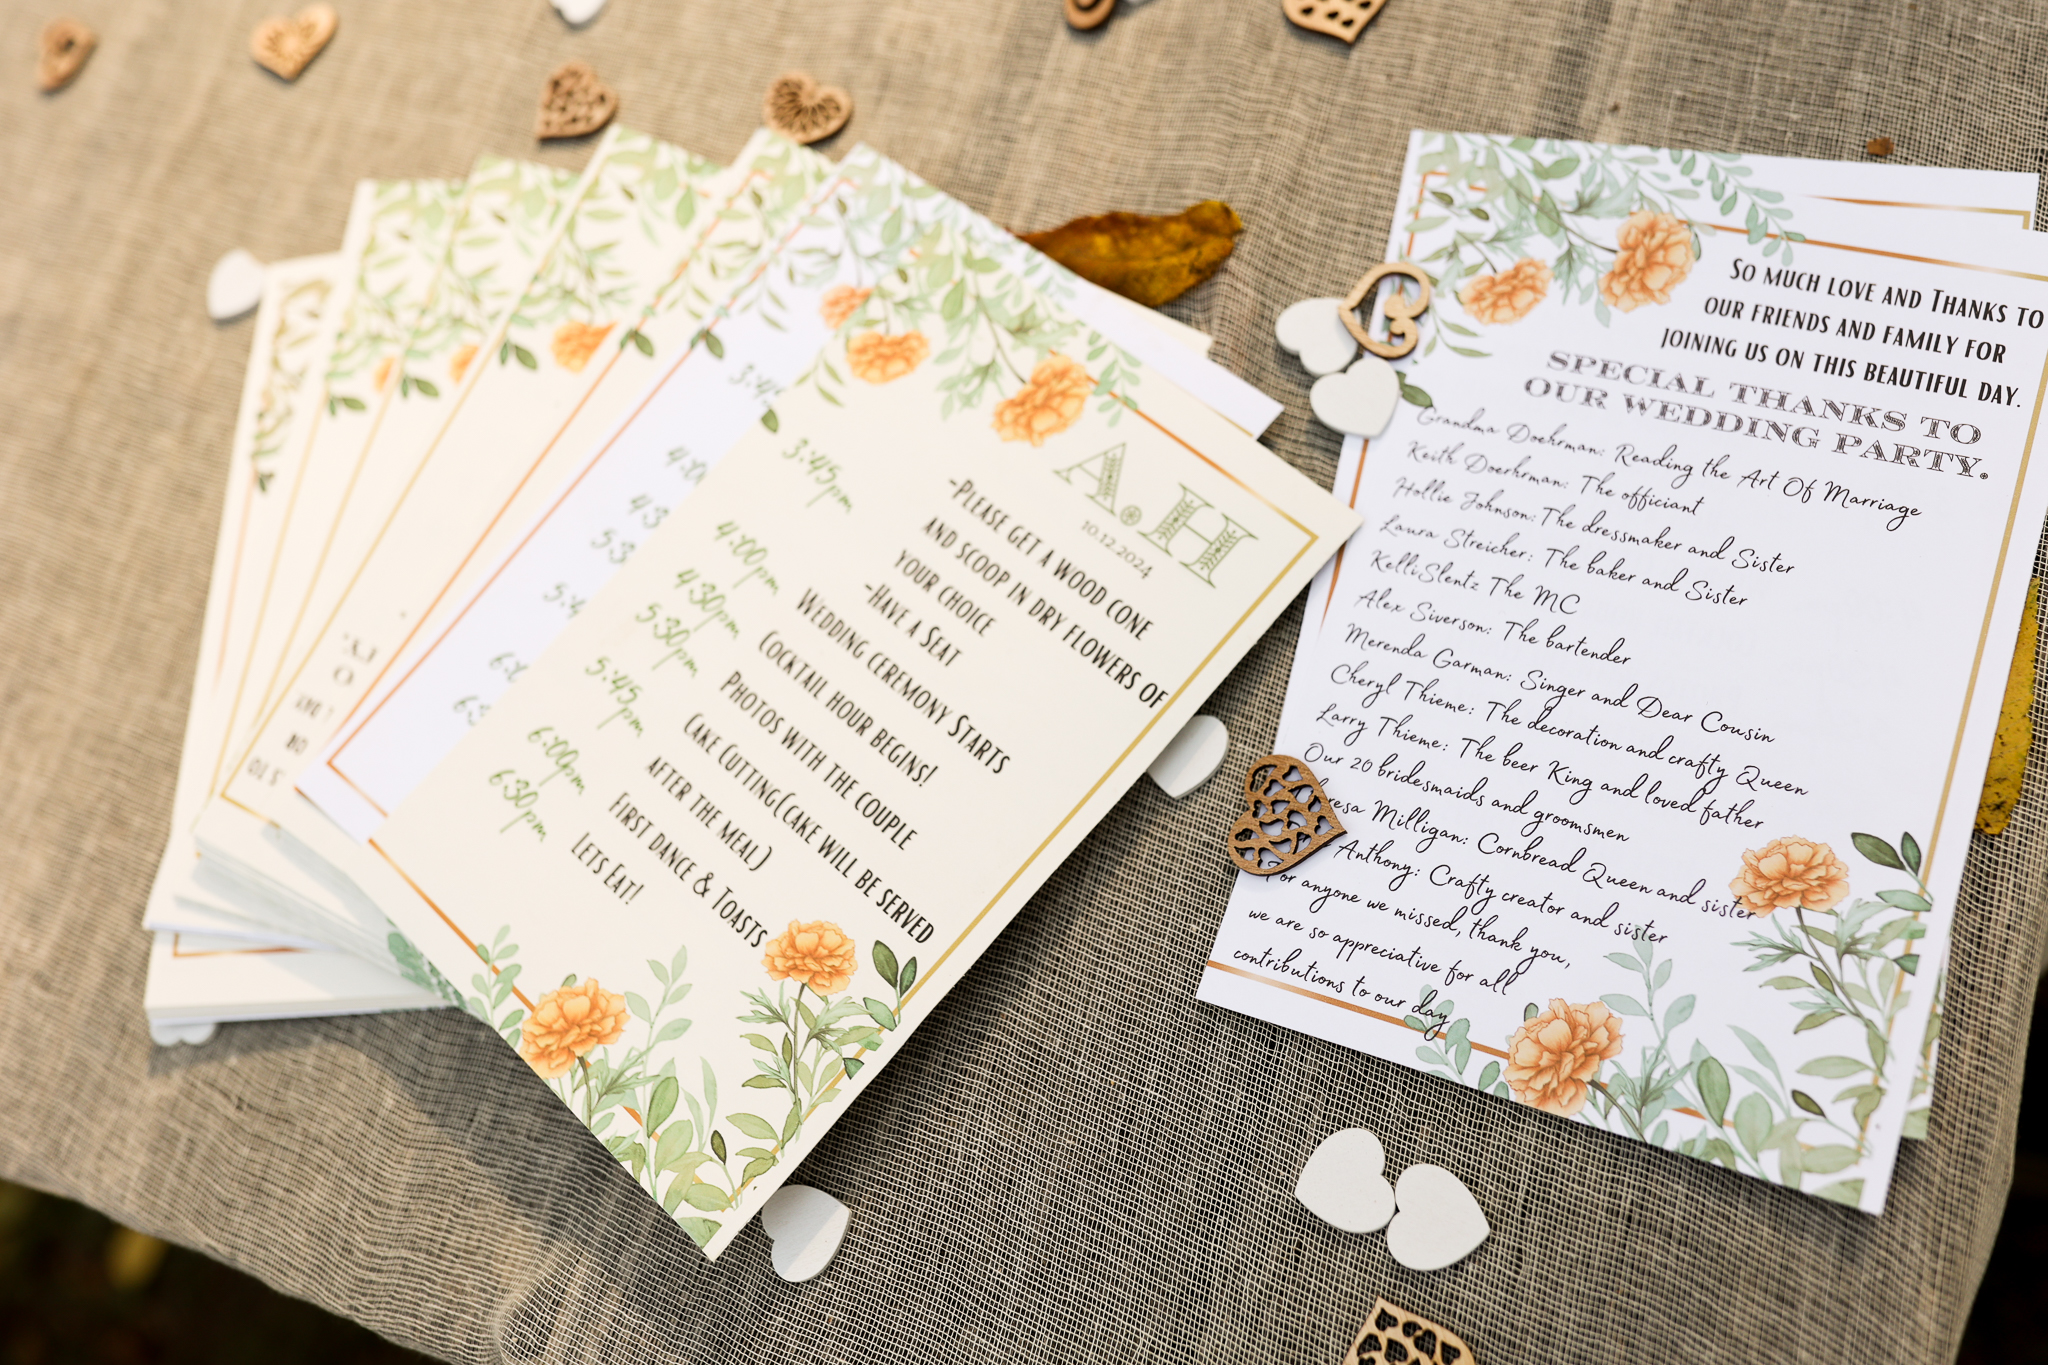 A.H
10.12.2024
3:45pm
-Please get a wood cone
and scoop in dry flowers of
your choice
-Have a Seat
4:00pm
Wedding ceremony Starts
430pm
Cocktail hour begins!
530pm
Photos with the couple
5:45pm
Cake Cutting(Cake will be served
after the meal)
6:00pm
First dance & Toasts
630pm
Lets Eat!
So much love and Thanks to
our friends and family for
joining us on this beautiful day.
SPECIAL THANKS TO
OUR WEDDING PARTY.
Grandma Doehrman: Reading the Art Of Marriage
Keith Doerhrman: The officiant
Hollie Johnson: The dressmaker and Sister
Laura Streicher: The baker and Sister
KelliSlentz The MC
Alex Siverson: The bartender
Merenda Garman: Singer and Dear Cousin
Cheryl Thieme: The decoration and crafty Queen
Larry Thieme: The beer King and loved father
Our 20 bridesmaids and groomsmen
Milligan: Cornbread Queen and sister
Anthony: Crafty creator and sister
For anyone we missed, thank you,
we are so appreciative for all
contributions to our day
3:45
4:00
43
53
5:4
6:0
63